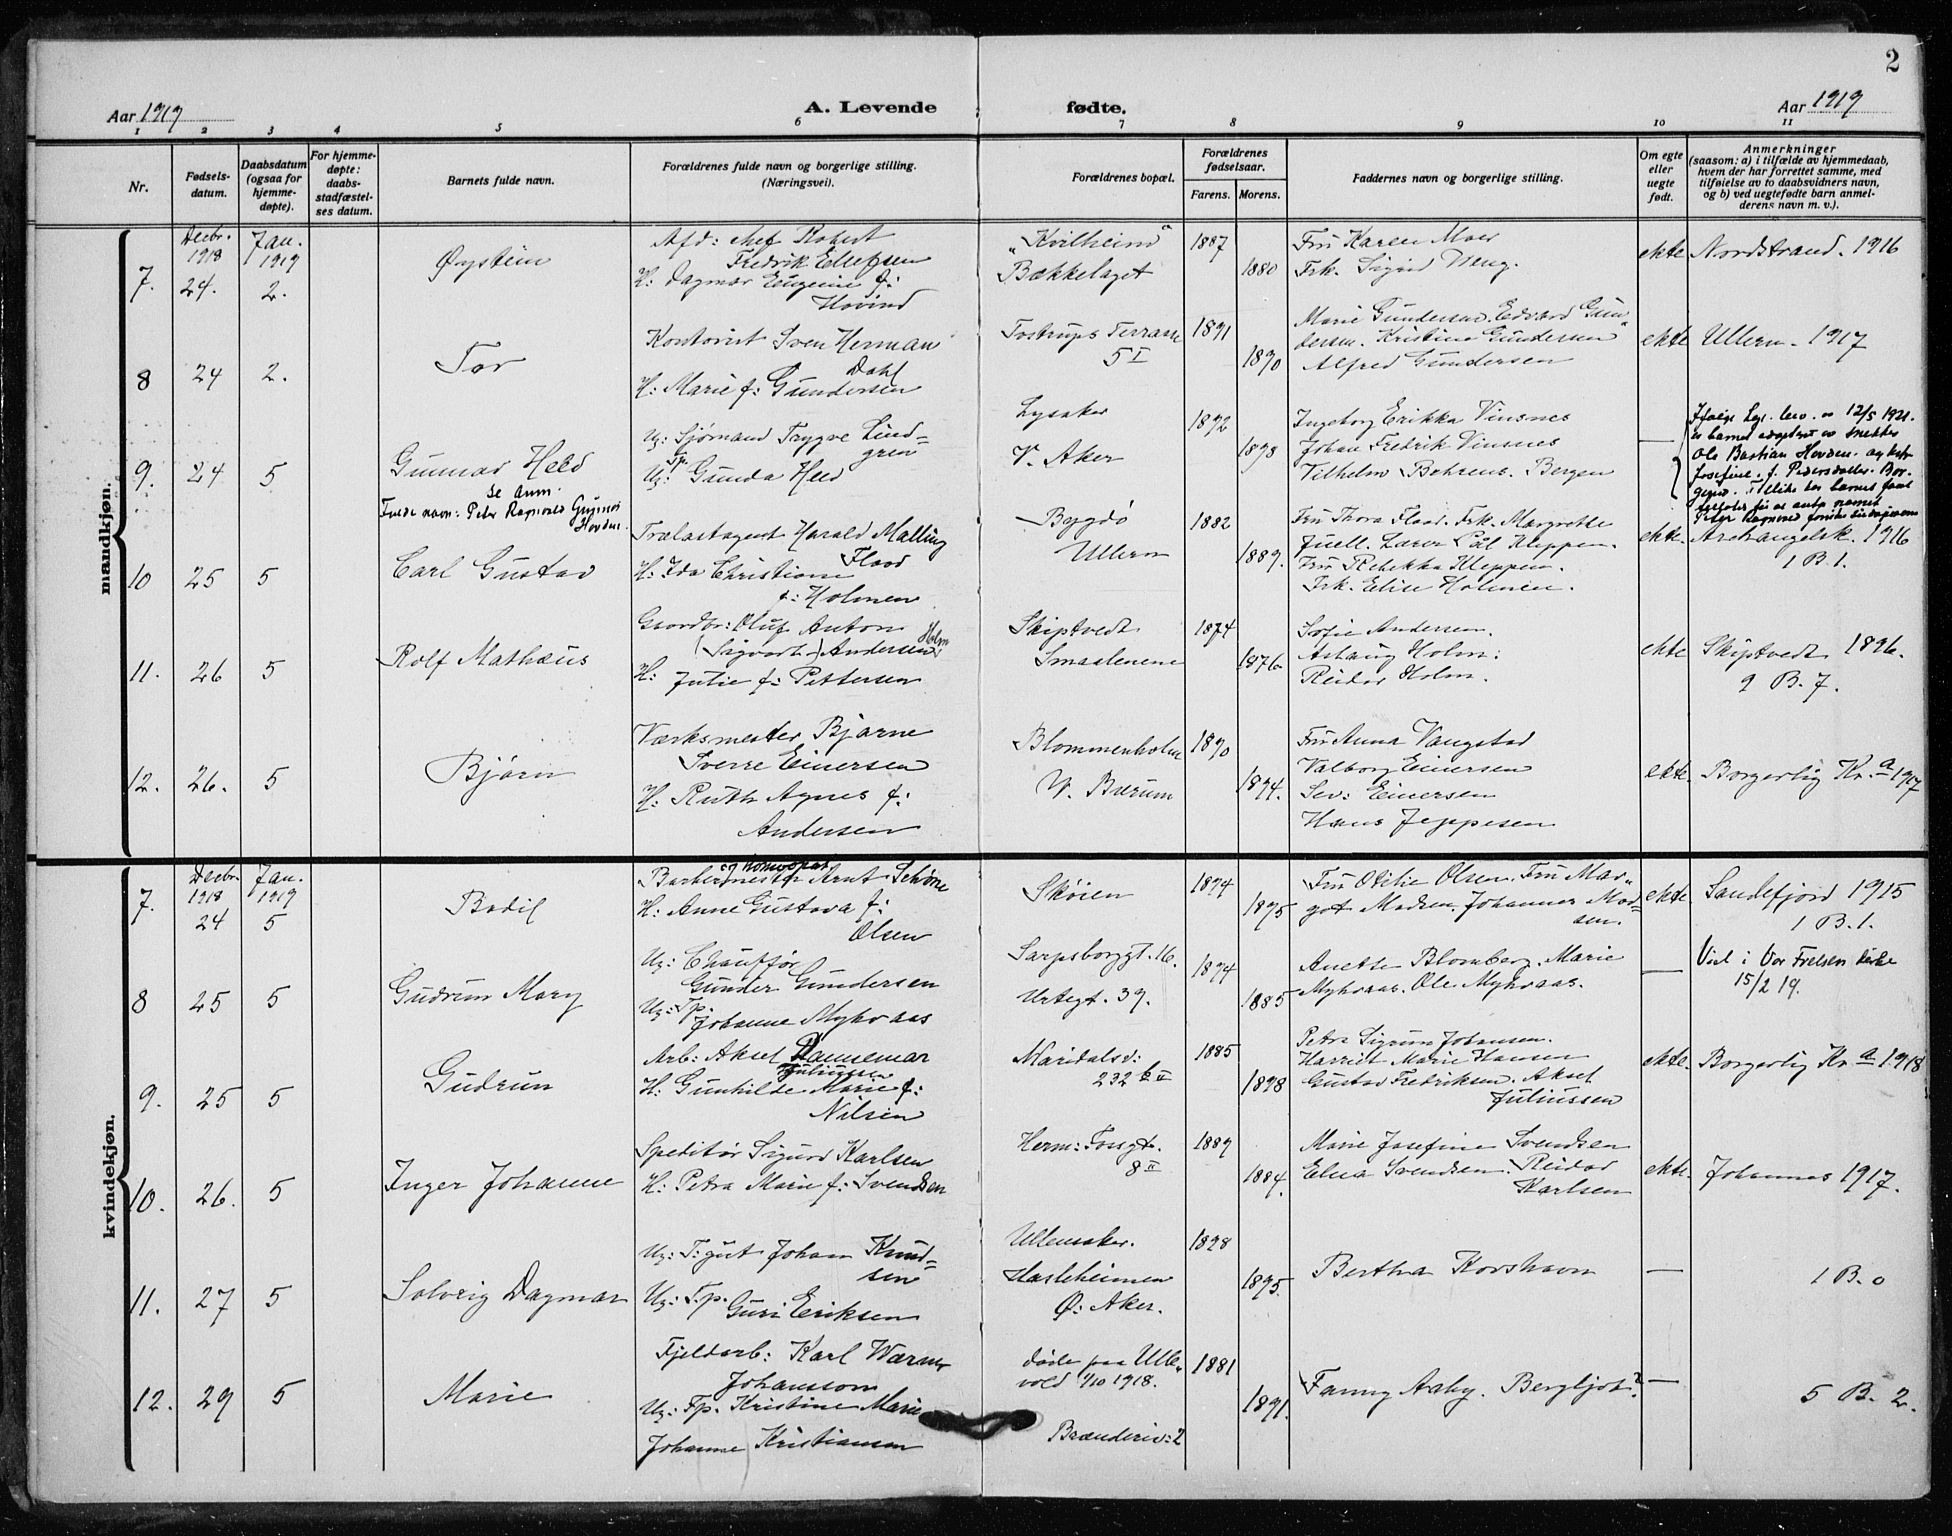 2
Aar 1919 A. Levende fødte. Aar 1919
1 2 3 4 5 6 7 8 9 10 11
Nr.
Fødsels-
datum.
Daabsdatum
(ogsaa for
hjemme-
døpte).
For hjemme-
døpte:
daabs-
stadfæstel-
ses datum.
Barnets fulde navn.
Forældrenes fulde navn og borgerlige stilling.
(Næringsvei).
Forældrenes bopæl.
Forældrenes
fødselsaar.
Farens. Morens.
Faddernes navn og borgerlige stilling.
Om egte
eller
uegte
født.
Anmerkninger
(saasom: a) i tilfælde av hjemmedaab,
hvem der har forrettet samme, med
tilføielse av to daabsvidners navn,
og b) ved uegtefødte barn anmel-
derens navn m. v.).
mandkjøn.
7.
Decbr.
1918
24.
Jan.
1919
2.
Øystein
Afd: chef Robert
Fredrik Ellefsen
H: Dagmar Eugenie f:
Hovind
"Kvilheim"
Bækkelaget
1887
1880
Fru Karen Moer
Frk. Sigrid Vang.
ekte
Nordstrand. 1916
8
24
2.
Tor
Kontorist Sven Herman
Dahl
H: Marie f: Gundersen
Tostrups Terrasse
5 I
1891
1890
Marie Gundersen. Edvard Gun"
dersen. Kristine Gundersen
Alfred Gundersen
ekte
Ullern. 1917
9.
24
5
Gunnar Held
se anm.
Fulde navn: Peter Ragnvald Gunnar
Hovden.
Ug: Sjømand Trygve Lind=
gren
Ug: Tp. Gunda Held
Lysaker
V. Aker
1892
1898
Ingeborg Erikka Vinsnes
Johan Fredrik Vinsnes
Vilhelm Bohrens. Bergen
—
Ifølge Lgs. bev. av 12/5 1921.
er barnet adoptert av snekker
Ole Bastian Hovden og hustr
Josefine f. Pedersdatter. Bor-
gund.
10
25
5
Carl Gustav
Trælastagent Harald Malling
Flood
H: Ida Christiane
f: Holmen
Bygdø
Ullern
1882
1889.
Fru Thora Flood. Frk. Margrethe
Juell. Lærer Pål Kleppen.
Fru Rebekka Kleppen.
Frk. Elise Holmen.
ekte.
Archangelsk. 1916
1 B. 1.
11.
26
5
Rolf Mathæus
Gaardbr: Oluf Anton
(Sigvart) Andersen Holm
H: Julie f: Pettersen
Skiptvedt
Smaalenene
1874
1876.
Sofie Andersen.
Aslaug Holm:
Reidar Holm.
ekte
Skiptvedt 1896.
9 B. 7.
12.
26.
5
Bjørn
Værksmester Bjarne
Sverre Einersen
H: Ruth Agnes f:
Andersen
Blommenholm
V. Bærum
1890
1894.
Fru Anna Vangstad
Valborg Einersen
Sev: Einersen
Hans Jeppesen
ekte.
Borgerlig Kr.a 1917
kvindekjøn.
7.
Decbr.
1918
24
Jan.
1919
5
Bodil
og homøopat
Barbermester Arnt Schøne
H: Anne Gustava f:
Olsen
Skøien
1894
1895
Fru Otilie Olsen. Fru Mar"
got Madsen. Johannes Mad=
sen.
ekte
Sandefjord 1915
1 B. 1.
8
25
5
Gudrun Mary
Ug: Chauffør
Gunder Gundersen
Ug: Tp.
Johanne Myhraas
Sarpsborggt. 16.
Urtegt. 39.
1894
1885
Anette Blomberg. Marie
Myhraas. Ole Myhraas.
—
Viet i Vor Frelsers kirke
15/2 19.
9.
25
5
Gudrun
Arb: Aksel Dannemar
Juliussen
H: Gunhilde Marie f:
Nilsen
Maridalsv:
232 b II
1885
1898
Petra Sigrun Johansen.
Harriet Marie Hansen
Gustav Fredriksen. Aksel
Juliussen
ekte.
Borgerlig Kr.a 1918
10.
26.
5
Inger Johanne
Speditør Sigurd Karlsen
H: Petra Marie f: Svendsen
Herm: Fossgt.
8 II
1889
1884.
Marie Josefine Svendsen
Elna Svendsen. Reidar
Karlsen
ekte.
Johannes 1917.
11.
27
5
Solveig Dagmar
Ug: T: gut Johan Knud=
sen
Ug: T.p.
Guri Eriksen
Ullensaker.
Hasleheimen
Ø: Aker.
1898
1895.
Bertha Korshavn
—
1 B. 0
12.
29
5
Marie
Fjeldarb: Karl Warner
Johansson
Ug: Tp. Kristine Marie
Johanne Kristiansen
døde paa Ulle"
vold 1/10 1918.
Brænderiv: 2
1881
1891.
Fanny Aaby. Bergljot
—
5 B. 2.